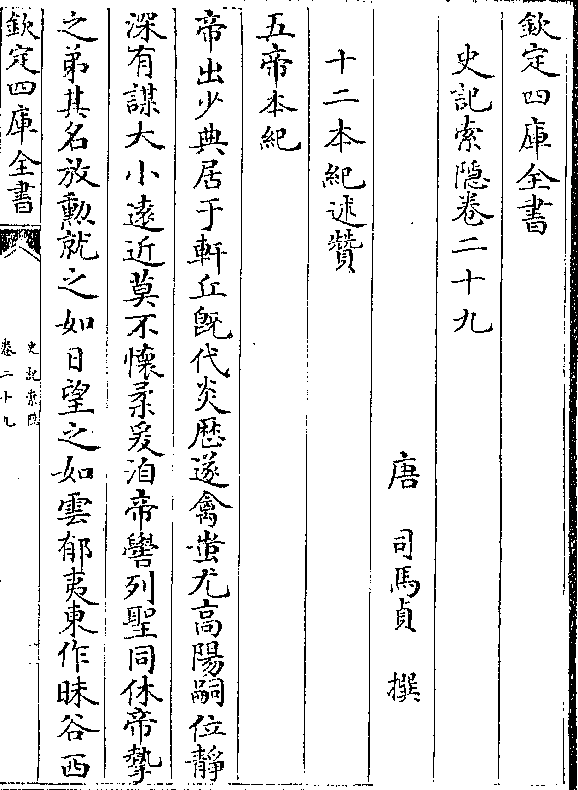 欽定四庫全書
史記索隱卷二十九
唐 司馬貞 撰
十二本紀述贊
五帝本紀
帝出少典居于軒丘既代炎歴遂禽蚩尤高陽嗣位靜
深有謀大小逺近莫不懷柔爰洎帝嚳列聖同休帝摯
之弟其名放勳就之如日望之如雲郁夷東作昧谷西
欽定四庫全書
史記索隱
卷二十九